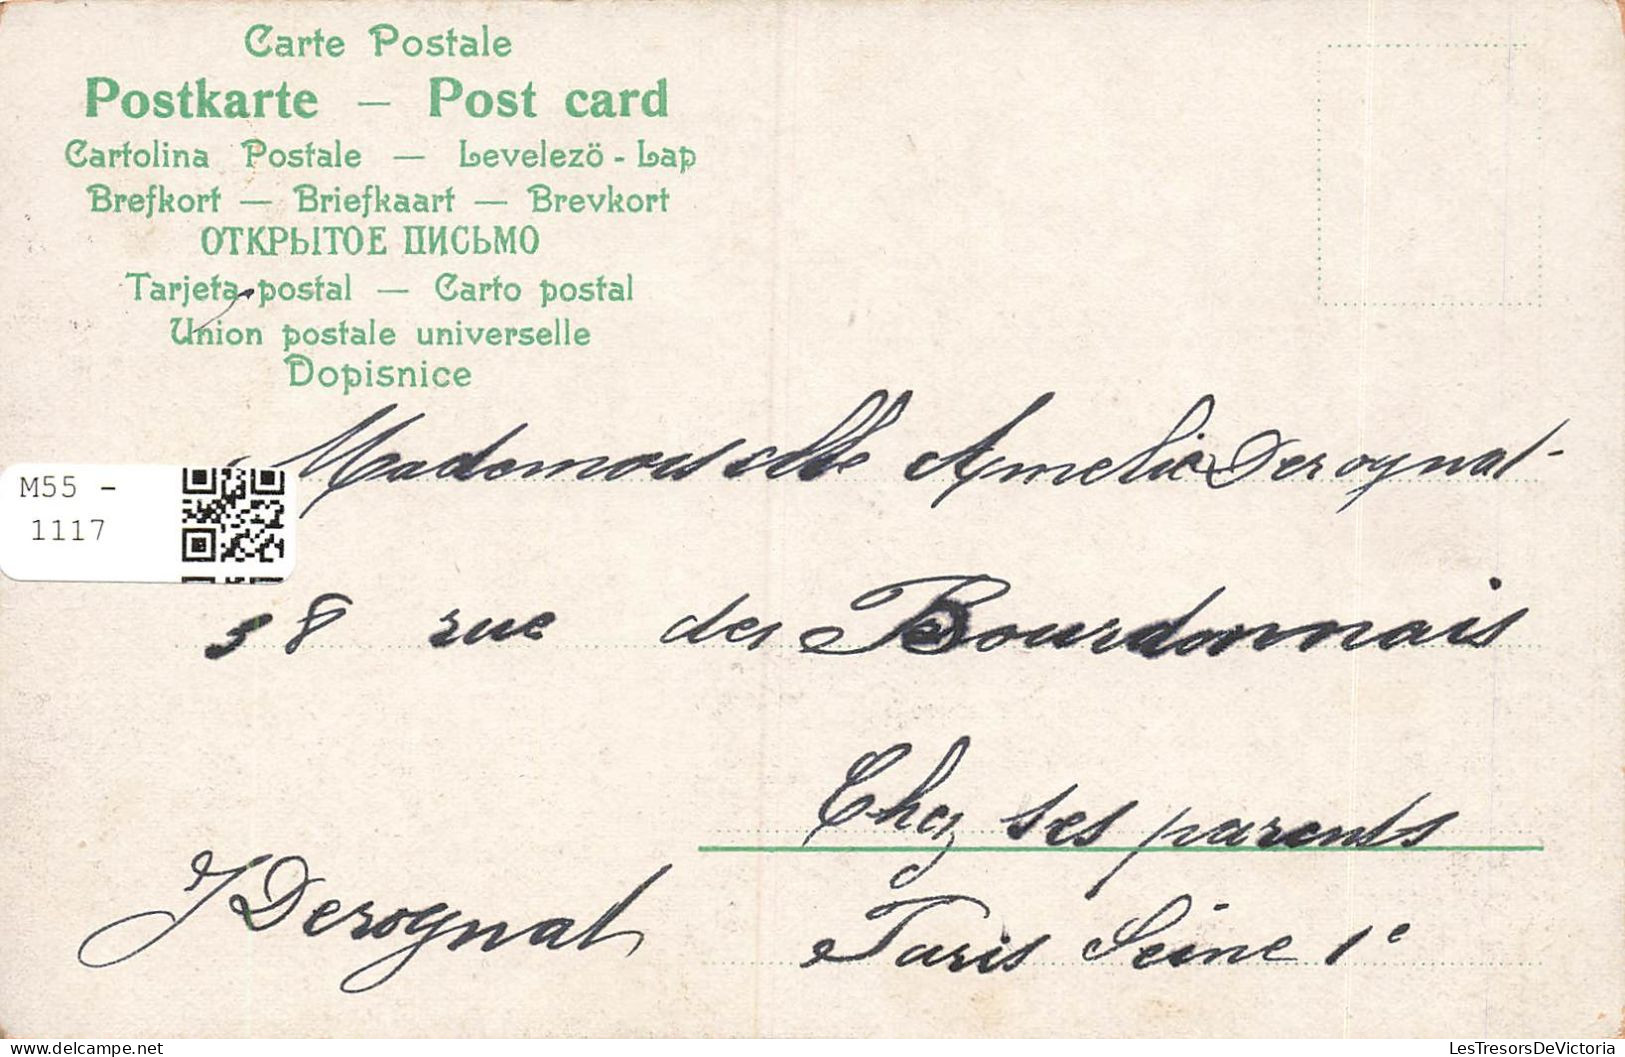 Carte Postale
Postkarte — Post card
Cartolina Postale — Levelezö - Lap
Brefkort — Briefkaart — Brevkort
ОТКРЫТОЕ ПИСЬМО
Tarjeta postal — Carto postal
Union postale universelle
Dopisnice
Mademoiselle Amelie Derognat
38 rue des Bourdonnais
Chez ses parents
Paris Seine 1e
J Derognat
M55 -
1117
LesTresorsDeVictoria